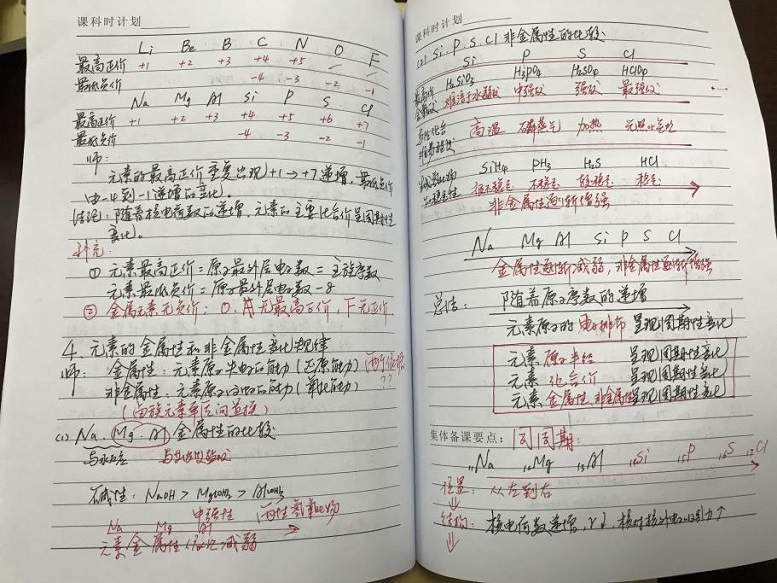 课科时计划
Li Be B C N O F
最高正价 +1 +2 +3 +4 +5 / /
最低负价 -4 -3 -2 -1
Na Mg Al Si P S Cl
最高正价 +1 +2 +3 +4 +5 +6 +7
最低负价 -4 -3 -2 -1
师:
元素的最高正价重复出现+1→+7递增,最低负价
由-4到-1递增的变化。
结论:随着核电荷数的递增,元素的主要化合价呈周期性
变化。
补充:
① 元素最高正价=原子最外层电子数=主族序数
元素最低负价=原子最外层电子数-8
② 金属元素无负价;O、F无最高正价,F无正价
4、元素的金属性和非金属性变化规律
师:金属性:元素原子失电子的能力(还原能力)
非金属性:元素原子得电子的能力(氧化能力)??
(1) Na、Mg、Al 金属性的比较
与水反应 与
碱性:NaOH > Mg(OH)2 > Al(OH)3
中强碱 两性氢氧化物
Na Mg Al
元素金属性依次减弱
课科时计划
(2) Si、P、S、Cl 非金属性的比较
Si P S Cl
H2SiO3 H3PO4 H2SO4 HClO4
难溶于水弱酸 中强酸 强酸 最强酸
高温 磷蒸气 加热 光照或点燃
SiH4 PH3 H2S HCl
很不稳定 不稳定 较稳定 稳定
非金属性逐渐增强
Na Mg Al Si P S Cl
金属性逐渐减弱,非金属性逐渐增强
总结:随着原子序数的递增
元素原子的电子排布呈现周期性变化
元素原子半径 呈现周期性变化
元素化合价 呈现周期性变化
元素金属性 非金属性呈现周期性变化
集体备课要点:同周期:
11Na 12Mg 13Al 14Si 15P 16S 17Cl
位置:从左到右
结构:核电荷数递增,r↓,核对核外电子吸引力↑